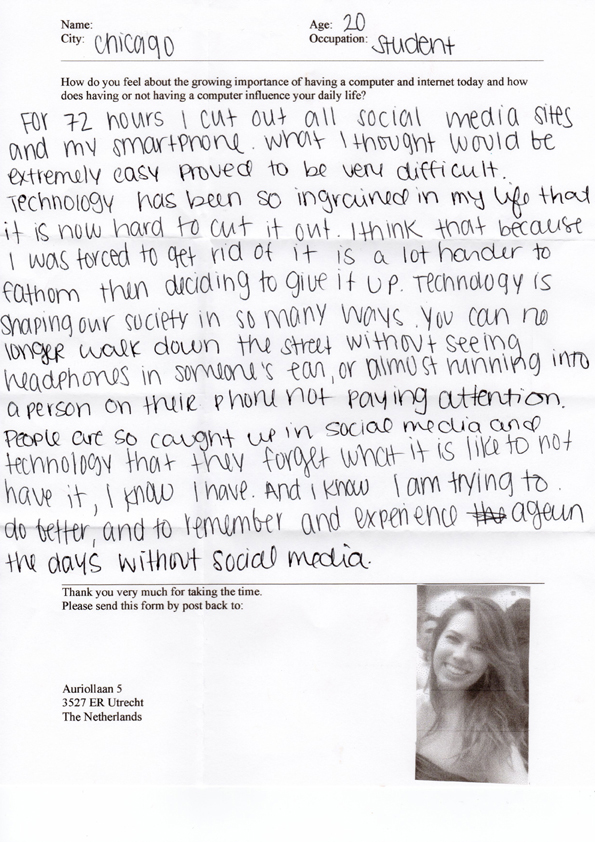 Name:
Age: 20
City: Chicago
Occupation: student
How do you feel about the growing importance of having a computer and internet today and how
does having or not having a computer influence your daily life?
For 72 hours I cut out all social media sites
and my smartphone. What I thought would be
extremely easy proved to be very difficult.
Technology has been so ingrained in my life that
it is now hard to cut it out. I think that because
I was forced to get rid of it is a lot harder to
fathom then deciding to give it up. Technology is
shaping our society in so many ways. You can no
longer walk down the street without seeing
headphones in someone's ear, or almost running into
a person on their phone not paying attention.
People are so caught up in social media and
technology that they forget what it is like to not
have it, I know I have. And I know I am trying to
do better, and to remember and experience the ageun
the days without social media.
Thank you very much for taking the time.
Please send this form by post back to:
Auriollaan 5
3527 ER Utrecht
The Netherlands